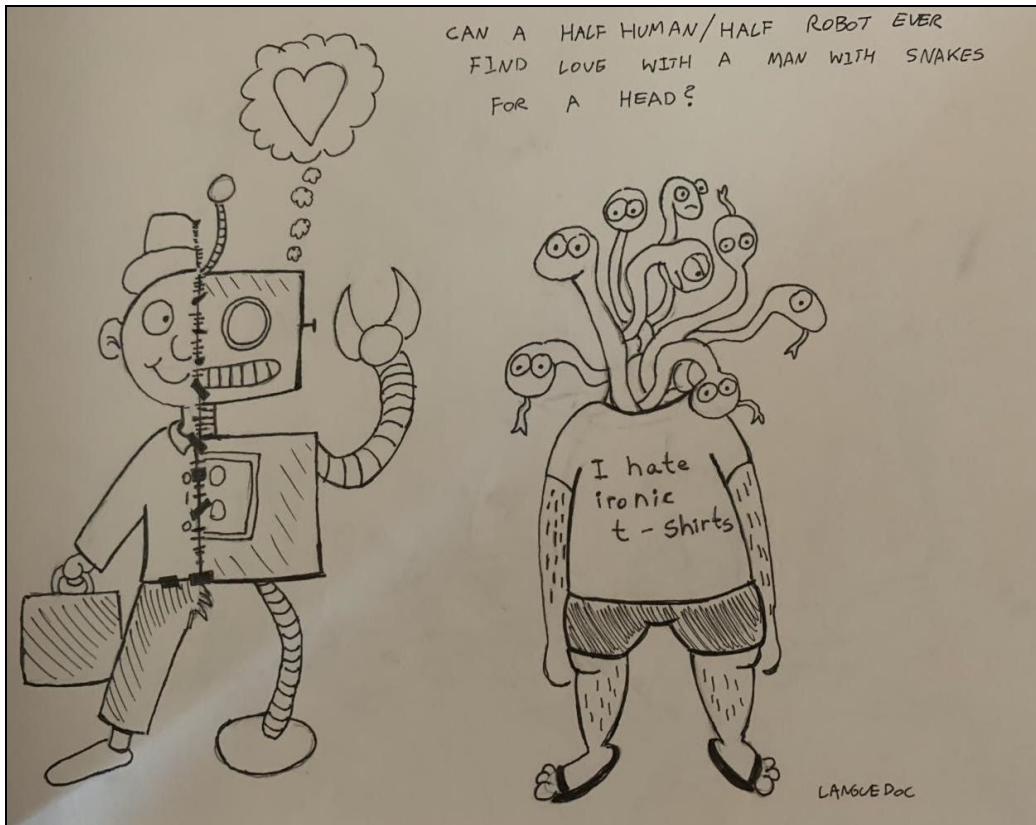 CAN A HALF HUMAN/HALF ROBOT EVER
FIND LOVE WITH A MAN WITH SNAKES
FOR A HEAD?
I hate
ironic
t-shirts
LANGUEDOC